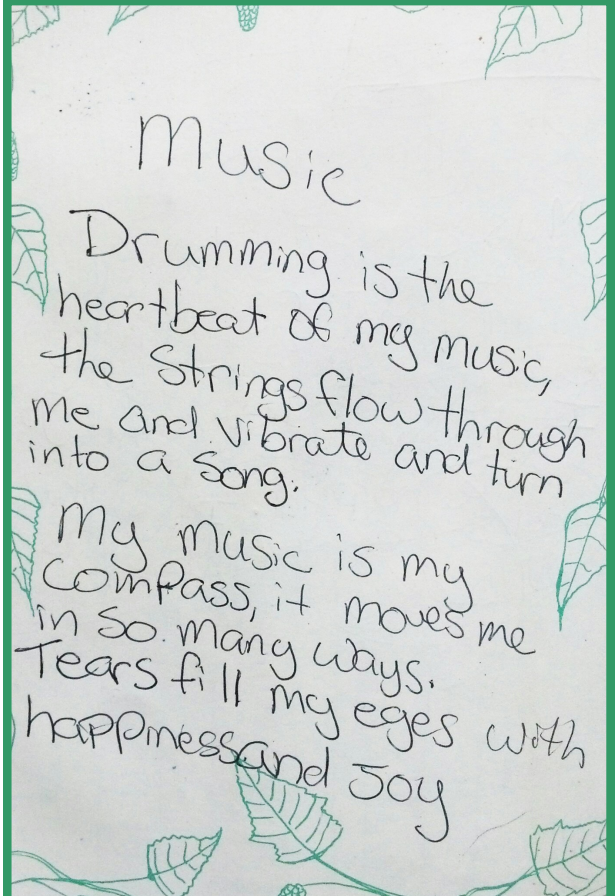 Music
Drumming is the
heartbeat of my music,
the Strings flow through
me and vibrate and turn
into a song.
My music is my
compass, it moves me
in so many ways.
Tears fill my eyes with
happiness and Joy